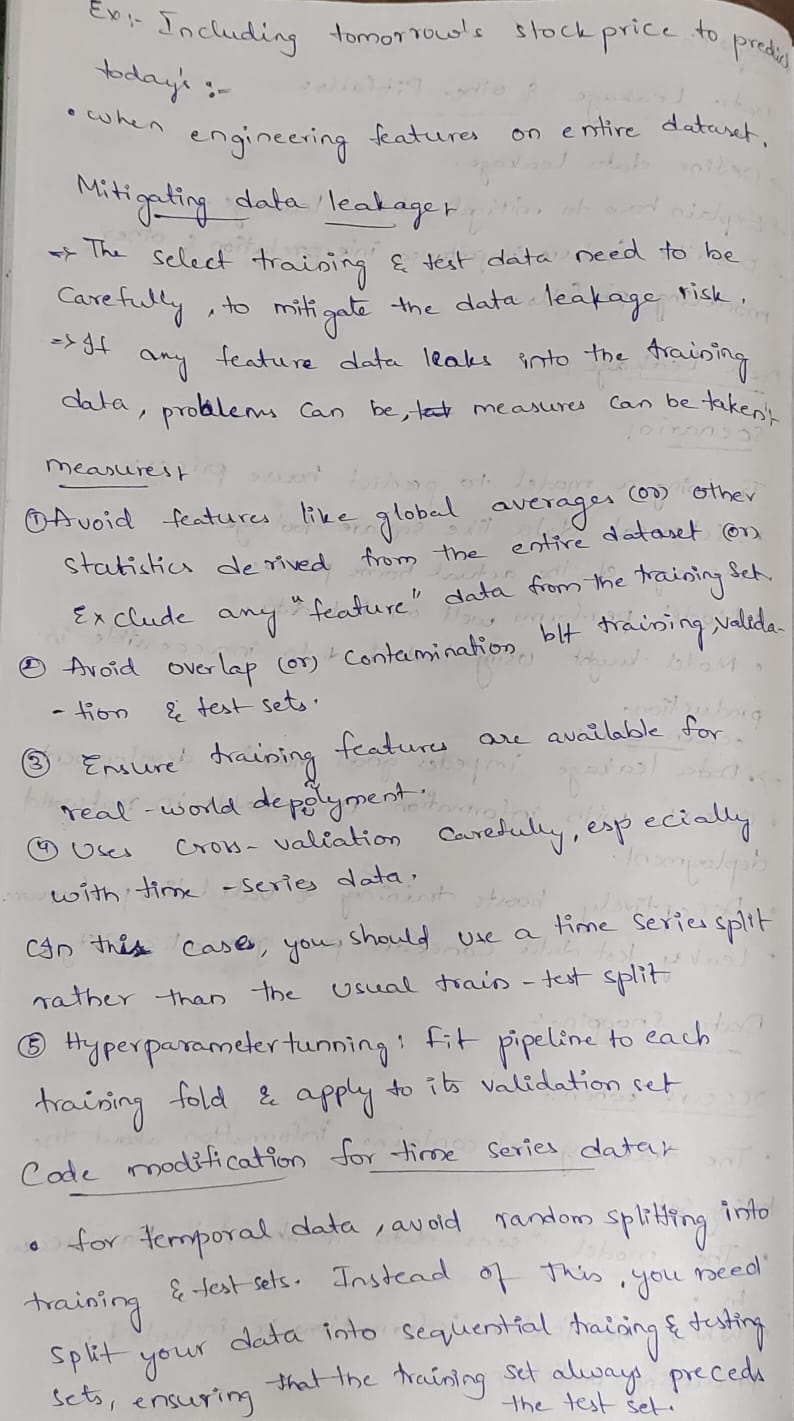 Ex:- Including tomorrow's stock price to predict
today's :-
• when engineering features on entire dataset.
Mitigating data leakage:-
=> The select training & test data need to be
Carefully, to mitigate the data leakage risk.
=> If any feature data leaks into the training
data, problems can be, measures can be taken:-
measures:-
① Avoid features like global averages (or) other
statistics derived from the entire dataset (or)
Exclude any "feature" data from the training set.
② Avoid overlap (or) contamination b/t training, valida-
-tion & test sets.
③ Ensure training features are available for
real-world depolyment.
④ Uses cross-valiation carefully, especially
with time-series data.
(In this case, you should use a time series split
rather than the usual train-test split
⑤ Hyperparameter tunning: fit pipeline to each
training fold & apply to its validation set
Code modification for time series data:-
• for temporal data, avoid random splitting into
training & test sets. Instead of this, you need
split your data into sequential training & testing
sets, ensuring that the training set always preceds
the test set.